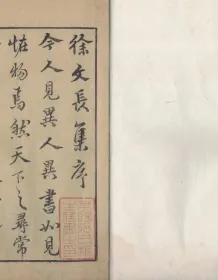 徐文長集序
今人見異人異書如見
怪物焉然天下之尋常